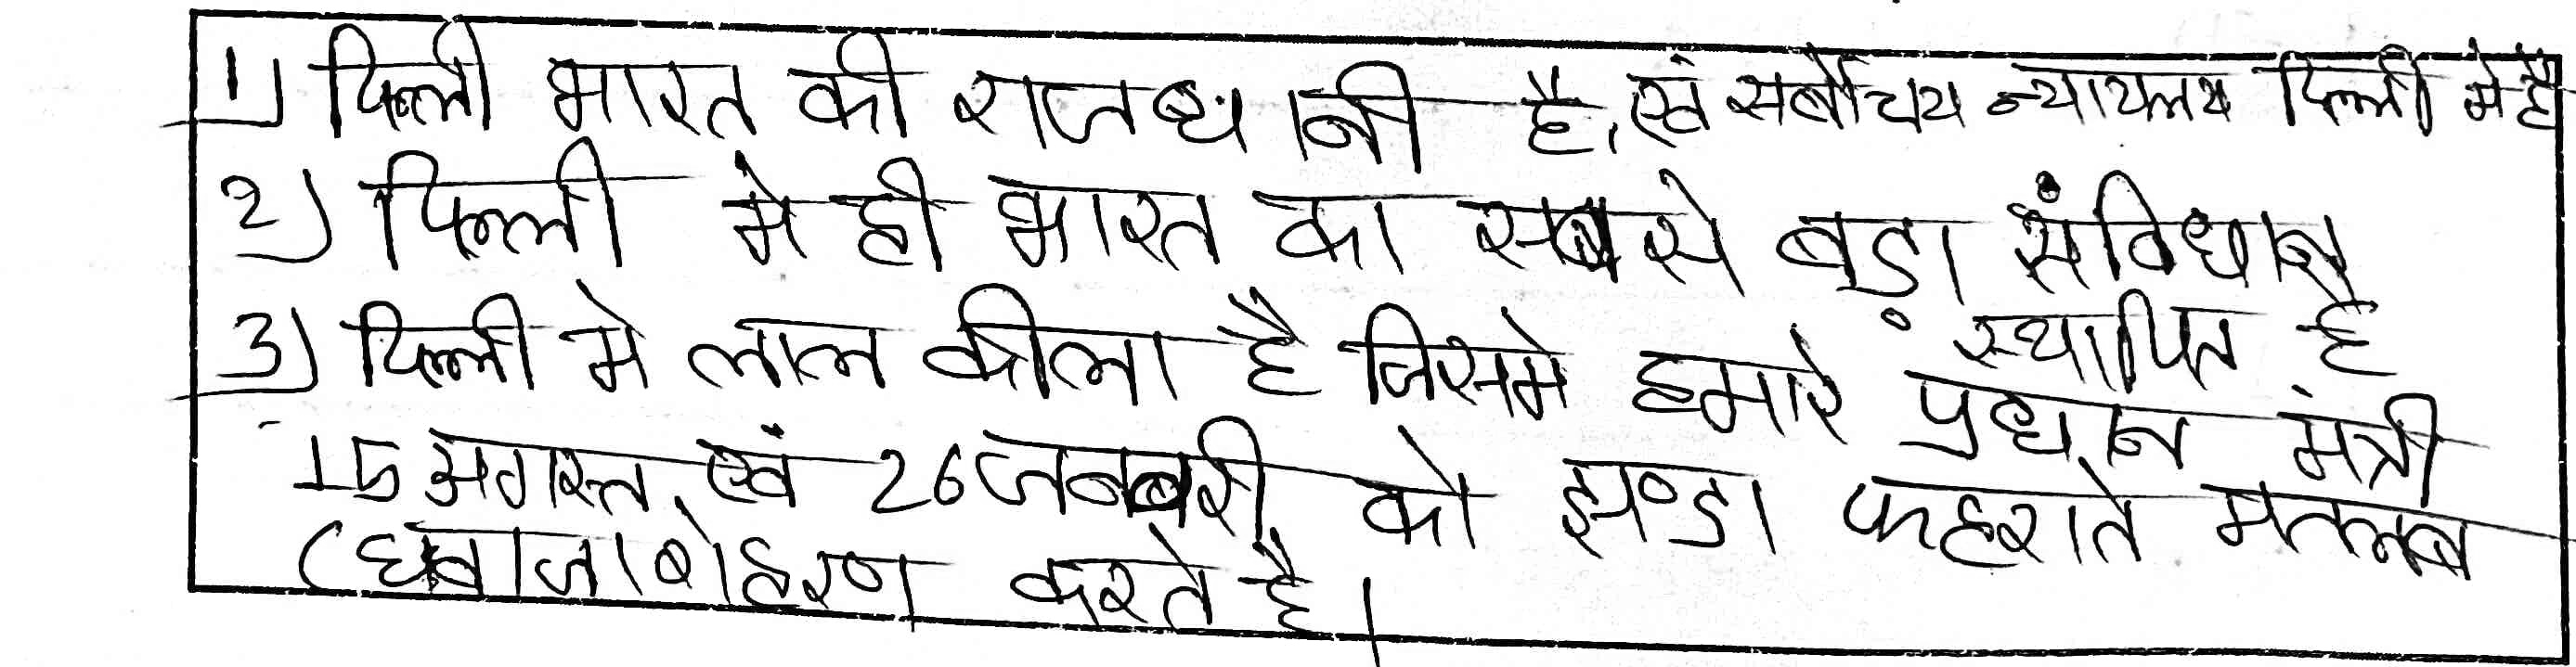 1) दिल्ली भारत की राजधानी है, एवं सर्बोचय न्यायलय दिल्ली मे है
2) दिल्ली मे ही भारत का सबसे बड़ा संविधान
स्थापित है
3) दिल्ली मे लाल कीला है जिसमे हमारे प्रधान मंत्री
15 अगस्त, एवं 26 जनबरी को झण्डा फहराते मतलब
(ध्बाजाबोहरण करते है।